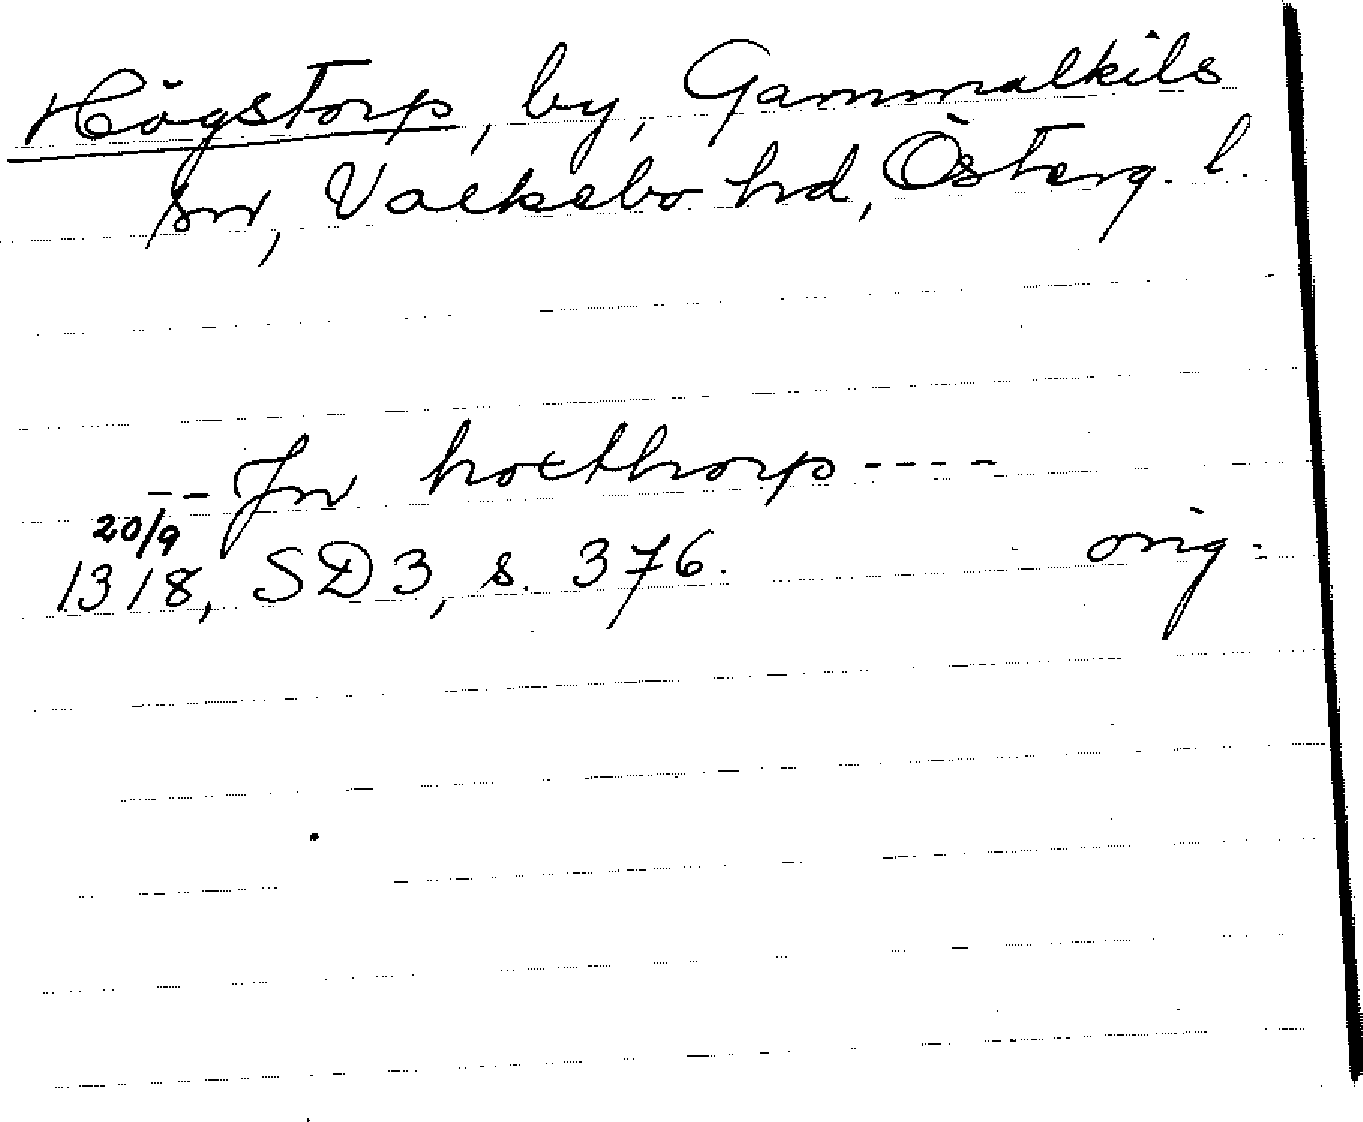 Högstorp, by, Gammalkils
sn, Valkebo hd, Österg. l.
-- Jn hoxthorp ----
20/9
1318, SD3, s. 376. orig.